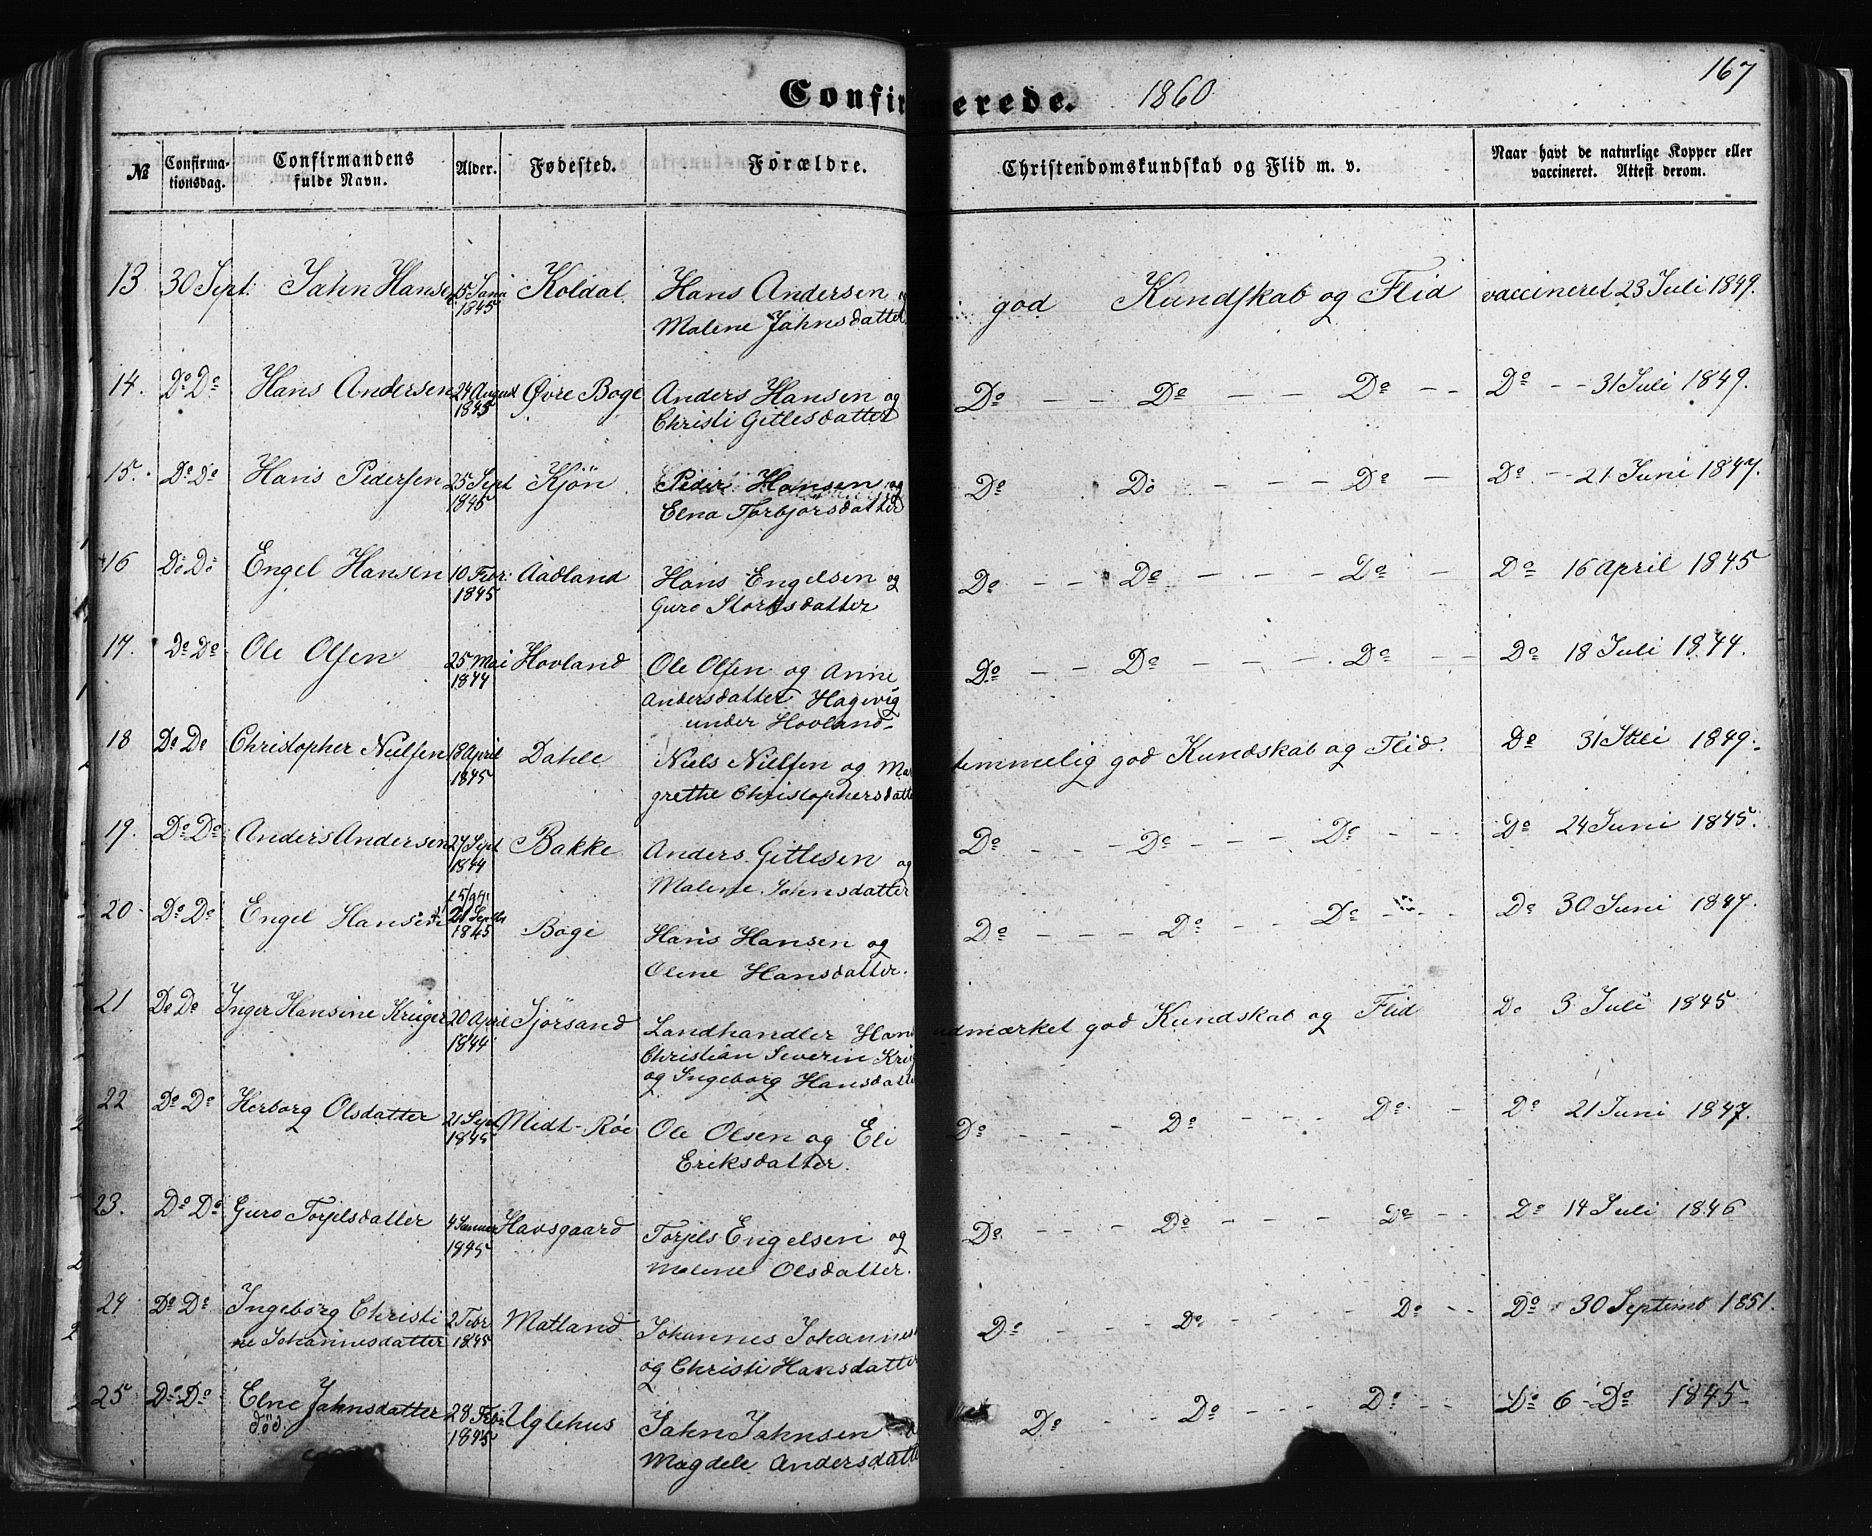 167
Confirmerede. 1860
№ Confirma-tionsdag. Confirmandens fulde Navn. Alder. Fødested. Forældre. Christendomskundskab og Flid m. v. Naar havt de naturlige Kopper eller vaccineret. Attest derom.
13 30 Sept: Jahn Hansen 15 Koldal. Hans Andersen og god Kundskab og Flid vaccineret 23 Juli 1849.
1845 Malene Jahnsdatter
14. Do Do Hans Andersen 24 August Øvre Boge Anders Hansen og Do - - Do - - Do - - Do - - 31 Juli 1849.
1845 Christi Gitlesdatter
15. Do Do Hans Pedersen 25 Sept Kjøn Peder Hansen og Do Do - - - Do - - Do - - 21 Juni 1847.
1845 Elna Torbjørsdatter
16 Do Do Engel Hansen 10 Febr: Aadland Hans Engelsen og Do - - Do - - - Do - Do 16 April 1845
1845 Guro Storksdatter
17. Do Do Ole Olsen 25 Mai Hovland Ole Olsen og Anne Do - - Do - - - Do - - Do 18 Juli 1844.
1844 Andersdatter Hagevig
under Hovland-
18 Do Do Christopher Nielsen 18 April Dahle Niels Nielsen og Mar temmelig god Kundskab og Flid. Do 31 Juli 1849.
1845 grethe Christophersdatte
19. Do Do Anders Andersen 27 Sept Bakke Anders Gitlesen og Do - - - Do - - - Do - - - Do 24 Juni 1845.
1844 Malene Jahnsdatter
20 Do Do Engel Hansen Boge Hans Hansen og Do - - - Do - - - Do - - - Do 30 Juni 1847.
1845 Oline Hansdatter.
21 Do Do Inger Hansine Krüger 20 April Sjørsand Landhandler Han udmærket god Kundskab og Flid Do 3 Juli 1845
1844 Christian Severin Krüg
og Ingeborg Hansdatte
22 Do Do Herborg Olsdatter 21 Sept Midt-Røe Ole Olsen og Eli Do - - - Do - - - Do - Do 21 Juni 1847.
1845 Eriksdatter.
23. Do Do Guro Torjelsdatter 4 Januar Havsgaard Torjels Engelsen og Do - - - Do - - - Do - - Do 14 Juli 1846
1845 Malene Olsdatter.
24 Do Do Ingeborg Christi 2 Febr Matland Johannes Johannes Do - - - Do - - - Do - - Do 30 Septemb 1851.
ne Johannesdatter 1845 og Christi Hansdatter
25 Do Do Elne Jahnsdatter 28 Febr Uglehus Jahn Jahnsen Do - - Do - - - Do - - Do 6 - Do 1845
død. 1845 Magdele Andersdatte